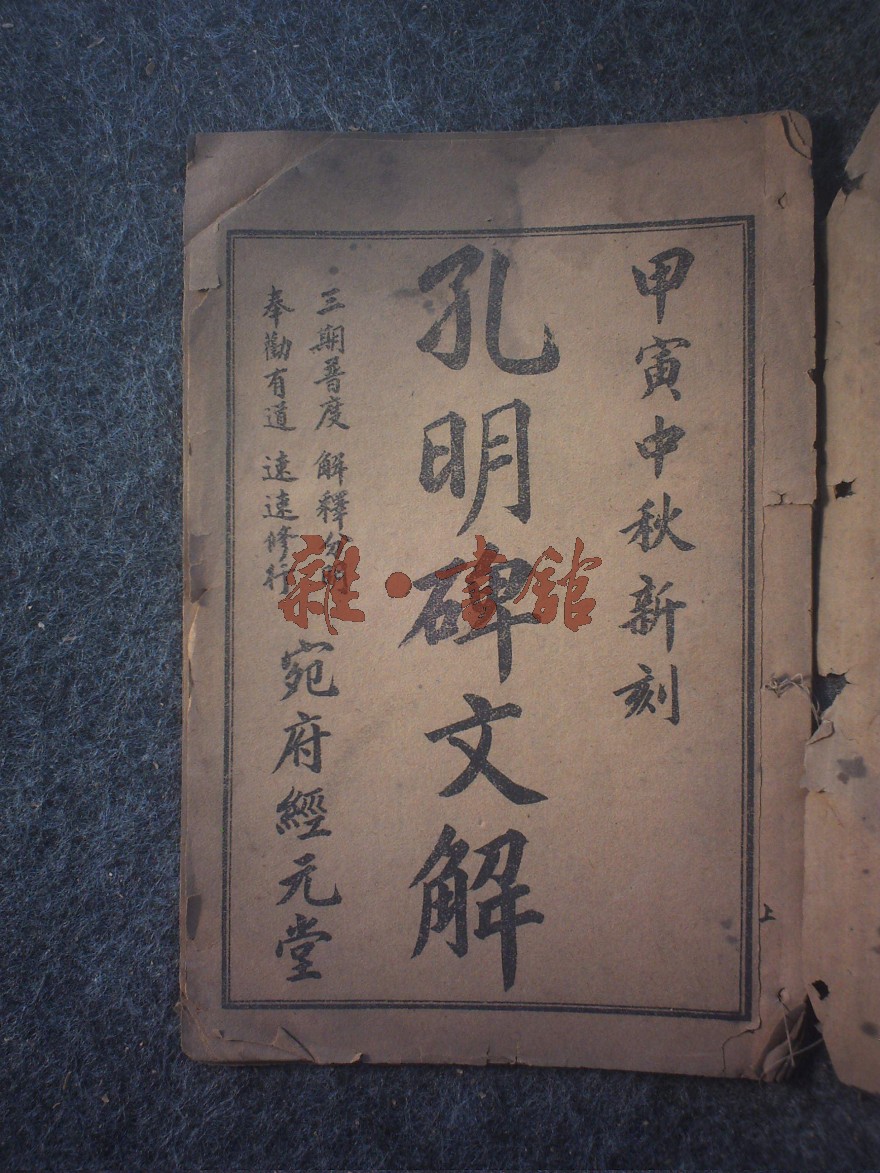 甲寅中秋新刻
孔明碑文解
三期普度 解釋分明
奉勸有道 速速修行
宛府經元堂
上
雜·書館